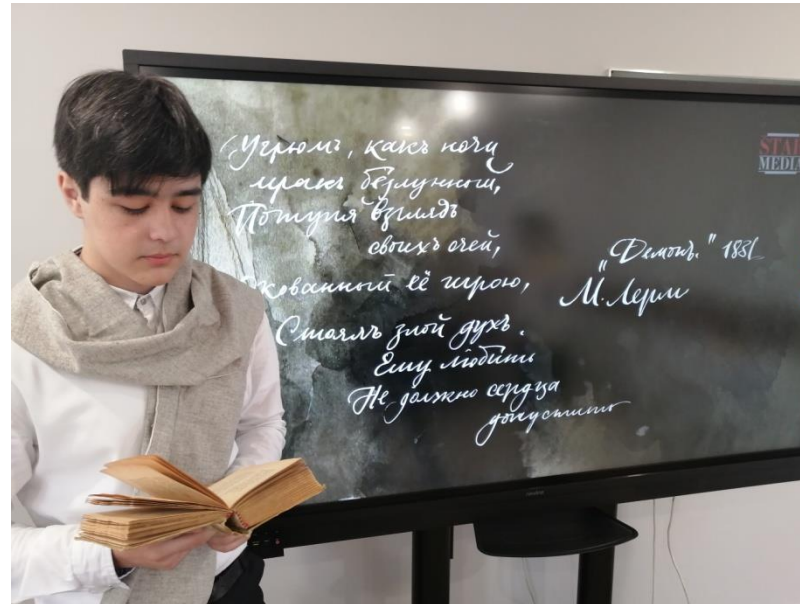 Угрюмъ, какъ ночи
мракъ безлунной,
Потупя взглядъ
своихъ очей,
кованный её игрою,
Стоялъ злой духъ.
Ему любить
Не должно сердца
допустить
"Демонъ." 183
М. Лерм
STAR
MEDIA